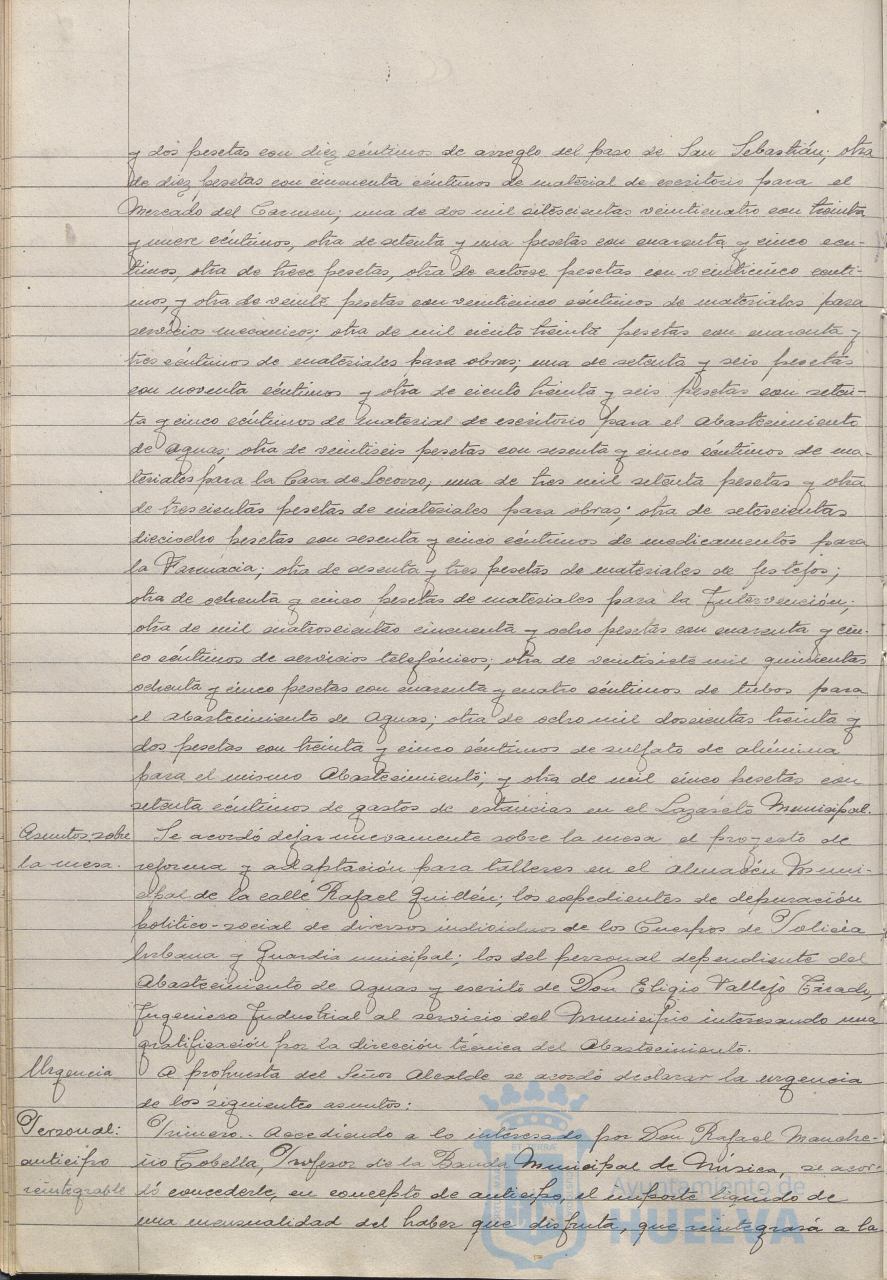 y dos pesetas con diez céntimos de arreglo del paso de San Sebastián; otra
de diez pesetas con cincuenta céntimos de material de escritorio para el
Mercado del Carmen; una de dos mil setescientas veinticuatro con treinta
y nueve céntimos, otra de setenta y una pesetas con cuarenta y cinco cén-
timos, otra de trece pesetas, otra de catorce pesetas con veinticinco cénti-
mos, y otra de veinte pesetas con veinticinco céntimos de materiales para
servicios mecánicos; otra de mil ciento treinta pesetas con cuarenta y
tres céntimos de materiales para obras; una de setenta y seis pesetas
con noventa céntimos y otra de ciento treinta y seis pesetas con seten-
ta y cinco céntimos de material de escritorio para el Abastecimiento
de Aguas; otra de veintiseis pesetas con sesenta y cinco céntimos de ma-
teriales para la Casa de Socorro; una de tres mil setenta pesetas y otra
de trescientas pesetas de materiales para obras; otra de setescientas
dieciocho pesetas con sesenta y cinco céntimos de medicamentos para
la Farmacia; otra de sesenta y tres pesetas de materiales de festejos;
otra de ochenta y cinco pesetas de materiales para la Intervención;
otra de mil cuatroscientas cincuenta y ocho pesetas con cuarenta y cin-
co céntimos de servicios telefónicos; otra de veintisiete mil quinientas
ochenta y cinco pesetas con cuarenta y cuatro céntimos de tubos para
el Abastecimiento de Aguas; otra de ocho mil doscientas treinta y
dos pesetas con treinta y cinco céntimos de sulfato de alúmina
para el mismo Abastecimiento; y otra de mil cinco pesetas con
setenta céntimos de gastos de estancias en el Lazareto Municipal.
Asuntos sobre la mesa.
Se acordó dejar nuevamente sobre la mesa el proyecto de
reforma y adaptación para talleres en el almacén Muni-
cipal de la calle Rafael Guillén; los expedientes de depuración
político-social de diversos individuos de los Cuerpos de Policía
Urbana y Guardia municipal; los del personal dependiente del
Abastecimiento de Aguas y escrito de Don Eligio Vallejo
Ingeniero Industrial al servicio del Municipio interesando una
gratificación por la dirección técnica del Abastecimiento.
Urgencia
A propuesta del Señor Alcalde se acordó declarar la urgencia
de los siguientes asuntos:
Personal:
anticipo
reintegrable
Primero.- Accediendo a lo interesado por Don Rafael Manche-
ño Tobella, Profesor de la Banda Municipal de Música, se acor-
dó concederle, en concepto de anticipo, el importe líquido de
una mensualidad del haber que disfruta, que reintegrará a la
Ayuntamiento de
HUELVA